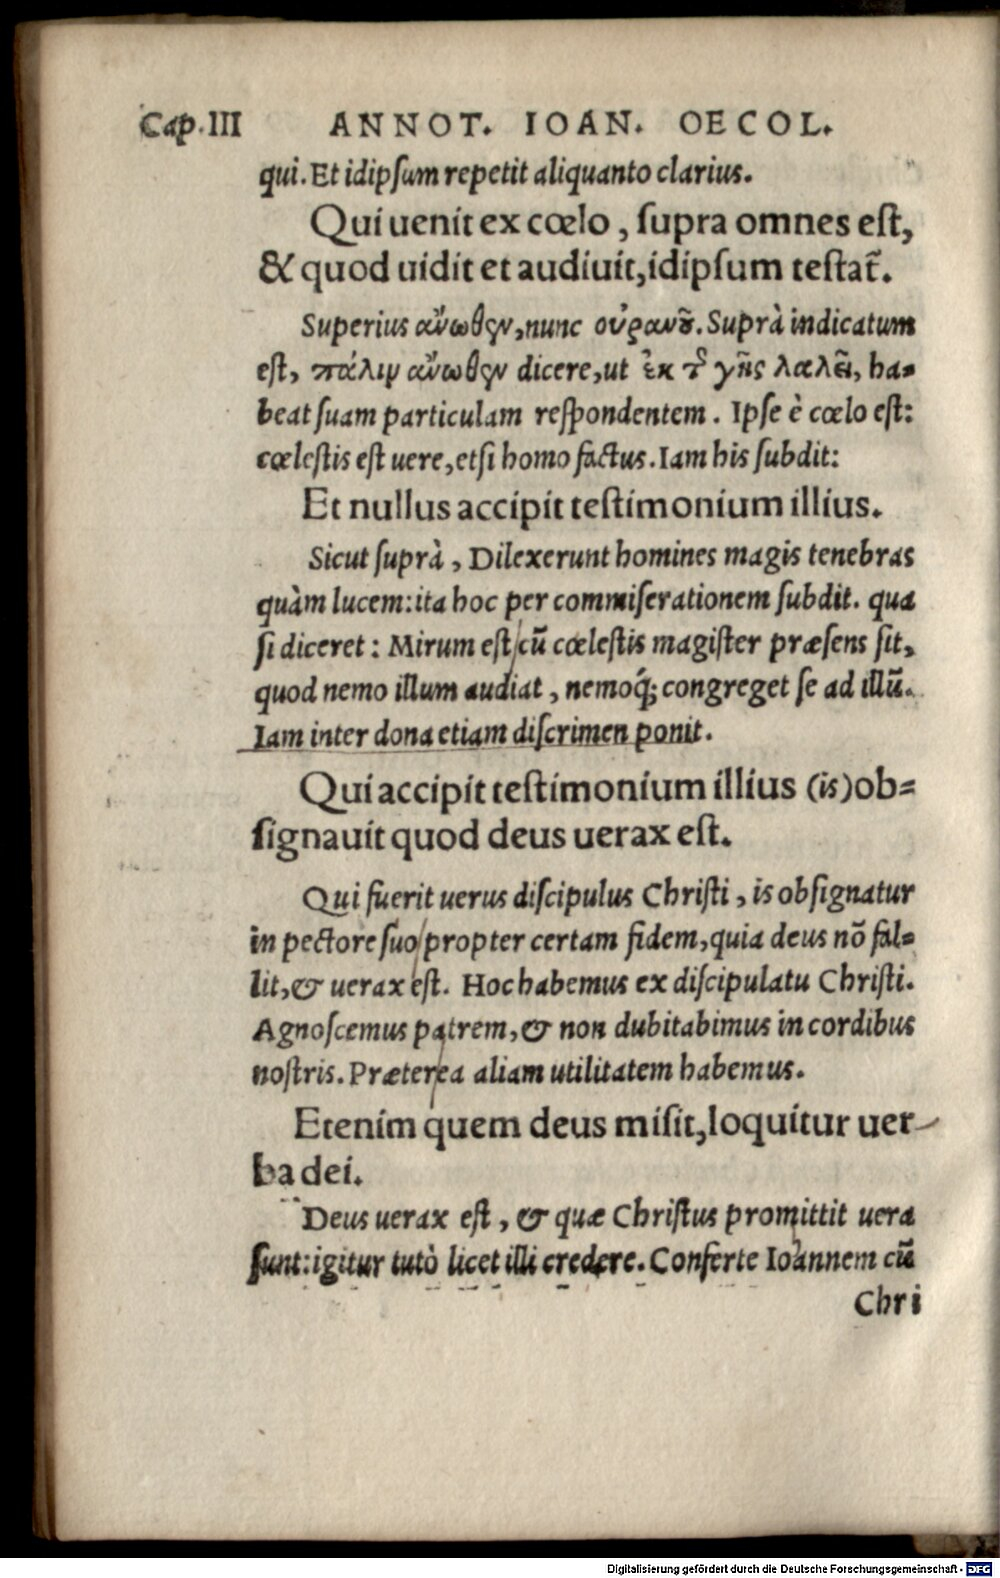 Cap.III ANNOT. IOAN. OECOL.
qui. Et idipſum repetit aliquanto clarius.
Qui uenit ex cœlo, ſupra omnes eſt,
& quod uidit et audiuit, idipſum teſtat̃.
Superius ἄνωθεν, nunc οὐρανοῦ. Suprà indicatum
eſt, πάλιν ἄνωθεν dicere, ut ἐκ τ͂ γῆς λαλεῖ, ha-
beat ſuam particulam reſpondentem. Ipſe è cœlo eſt:
cœleſtis eſt uere, etſi homo factus. Iam his ſubdit:
Et nullus accipit teſtimonium illius.
Sicut ſuprà, Dilexerunt homines magis tenebras
quàm lucem: ita hoc per commiſerationem ſubdit. qua
ſi diceret: Mirum eſt cũ cœleſtis magiſter præſens ſit,
quod nemo illum audiat, nemoq́; congreget ſe ad illũ.
Iam inter dona etiam diſcrimen ponit.
Qui accipit teſtimonium illius (is) ob-
ſignauit quod deus uerax eſt.
Qui fuerit uerus diſcipulus Chriſti, is obſignatur
in pectore ſuo propter certam fidem, quia deus nõ fal-
lit, & uerax eſt. Hoc habemus ex diſcipulatu Chriſti.
Agnoſcemus patrem, & non dubitabimus in cordibus
noſtris. Præterea aliam utilitatem habemus.
Etenim quem deus miſit, loquitur uer
ba dei.
Deus uerax eſt, & quæ Chriſtus promittit uera
ſunt: igitur tutò licet illi credere. Conferte Ioannem cũ
Chri
Digitalisierung gefördert durch die Deutsche Forschungsgemeinschaft - DFG